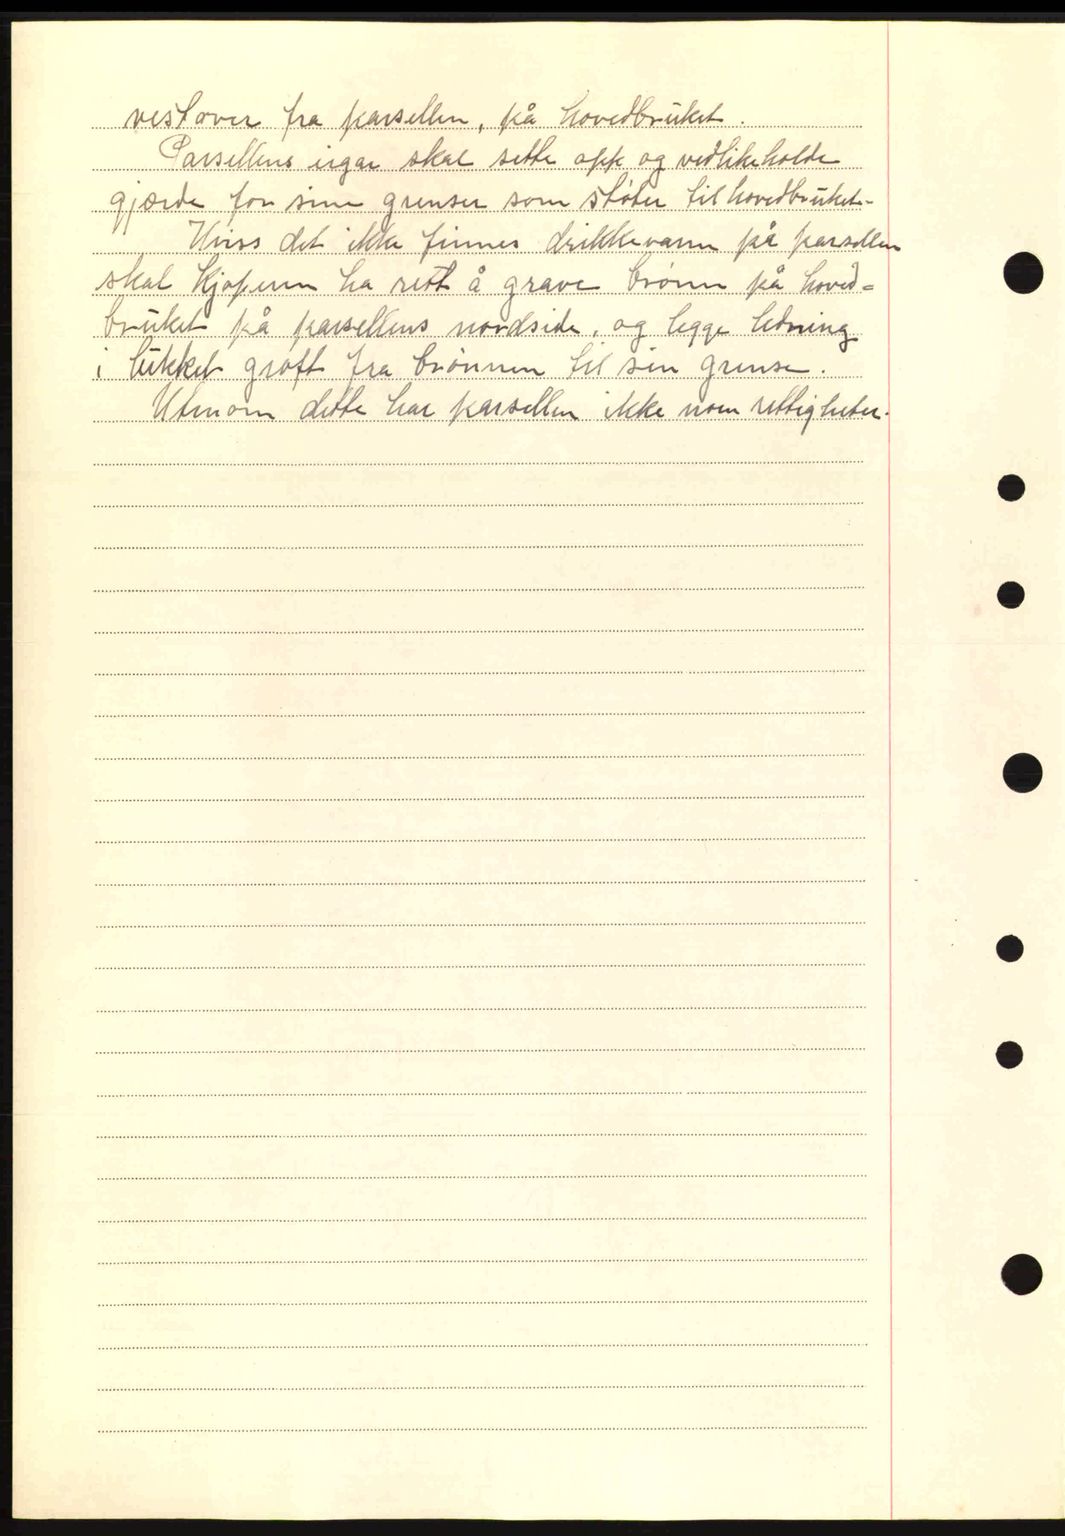 vestover fra parsellen, på hovedbruket.
Parsellens eigar skal sette opp og vedlikeholde
gjærde for sine grenser som støter til hovedbruket.
Hviss det ikke finnes drikkevann på parsellen
skal kjøperen ha rett å grave brønn på hoved=
bruket på parsellens nordside, og legge ledning
i lukket grøft fra brønnen til sin grense.
Utenom dette har parsellen ikke noen rettigheter.